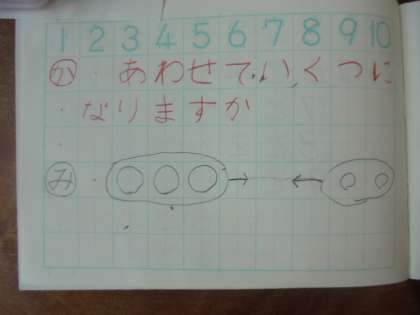 1 2 3 4 5 6 7 8 9 10
か・あわせていくつに
・なりますか
み